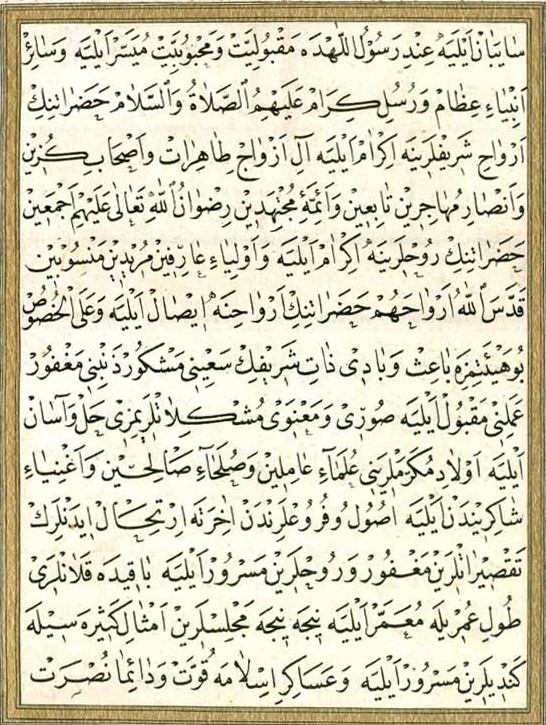 سايبان ايليه عند رسول اللهده مقبوليت ومحبوبيت ميسر ايليه وسائر
انبياء عظام ورسل كرام عليهم الصلاة والسلام حضراتنك
ارواح شريفلرينه اكرام ايليه آل ازواج طاهرات واصحاب كزين
وانصار مهاجرين تابعين وائمۀ مجتهدين رضوان الله تعالى عليهم اجمعين
حضراتنك روحلرينه اكرام ايليه واولياء عارفين مريدين منسوبين
قدس الله ارواحهم حضراتنك ارواحنه ايصال ايليه وعلى الخصوص
بوهيئتمزه باعث وبادى ذات شريفك سعيني مشكور ذنبني مغفور
عملني مقبول ايليه صورى ومعنوى مشكلاتلريمزى حل وآسان
ايليه اولاد مكرملريني علماء عاملين وصلحاء صالحين واغنياء
شاكريندن ايليه اصول وفروعلرندن اخرته ارتحال ايدنلرك
تقصيراتلرين مغفور وروحلرين مسرور ايليه باقيده قلانلرى
طول عمريله معمر ايليه نيجه نيجه مجلسلرين امثال كثيره سيله
كنديلرين مسرور ايليه وعساكر اسلامه قوت ودائما نصرت